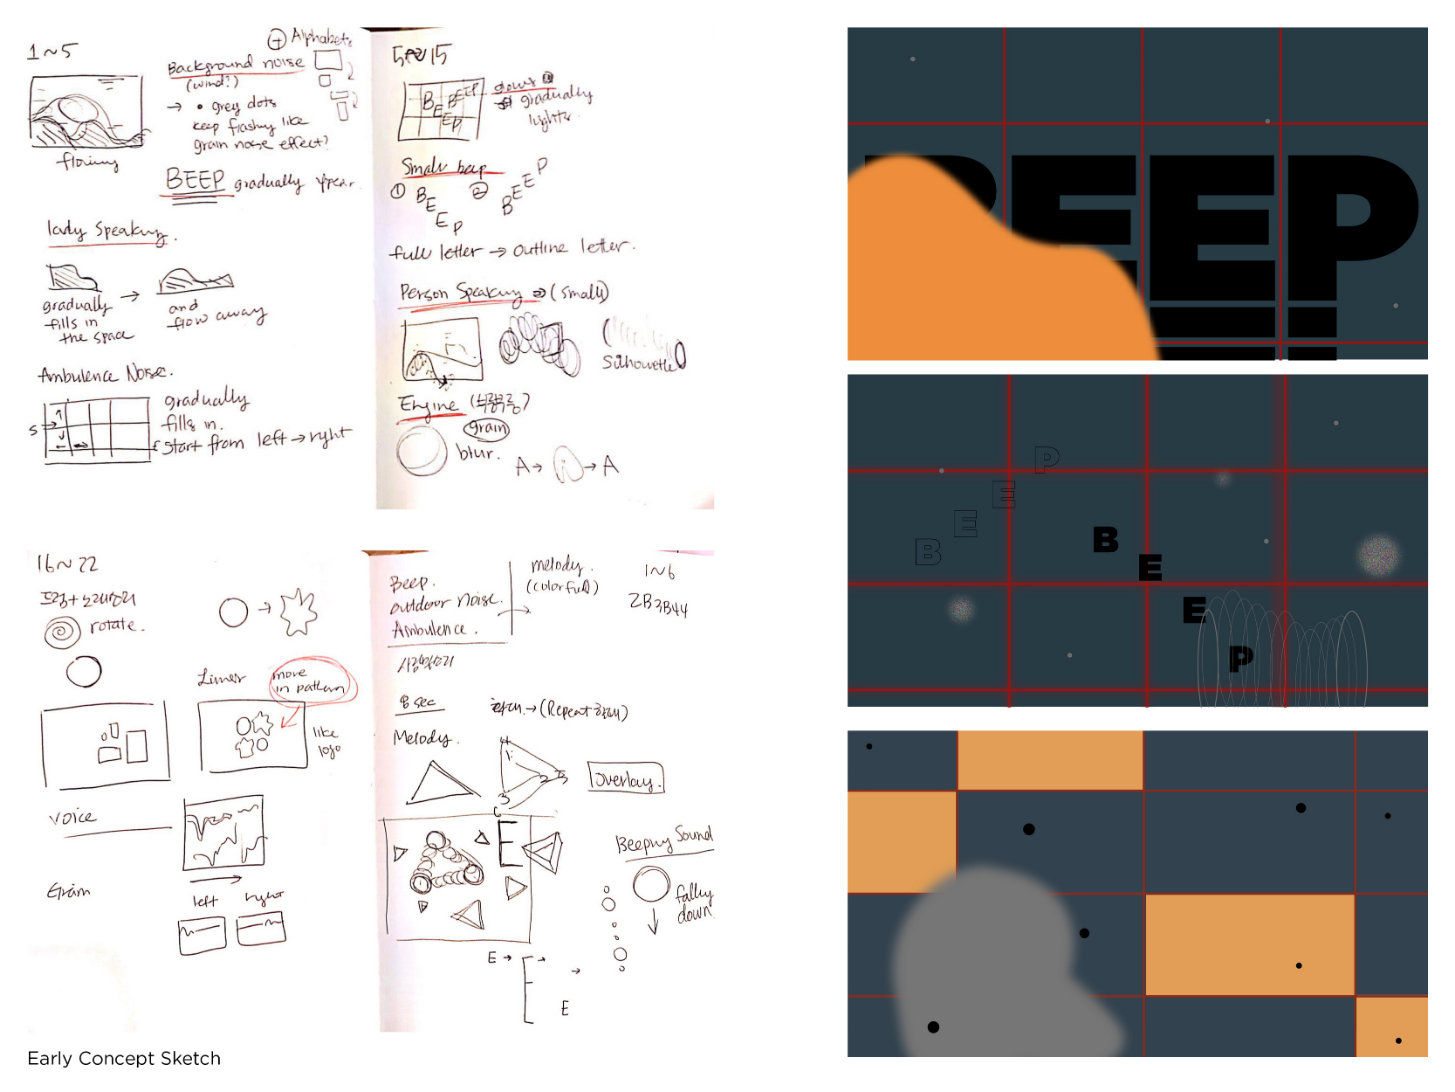 1~5
+ Alphabets
Background noise
(wind?)
→ • grey dots
keep flashing like
grain noise effect?
flowing
BEEP gradually appear.
lady Speaking.
gradually
fills in
the space
→
and
flow away
Ambulence Noise.
S
gradually
fills in.
Start from left → right
5~15
BEEP
BEEP
EP
gradually
lighter.
Small beep
① BEEP ② BEEP
full letter → outline letter.
Person Speaking ⇒ (small)
Silhouette
Engine (부릉부릉)
grain
blur.
A → → A
16~22
rotate.
Linner
move
in pattern
like
logo
voice
Grain
left right
Beep.
outdoor noise.
Ambulence.
melody.
(colorful)
1~6
2B3B44
8 sec
Melody.
1
2
3
overlay.
E
Beeping Sound
falling
down
E →
E
BEEP
BEEP
BEEP
Early Concept Sketch